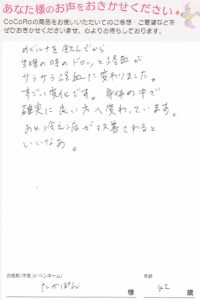 あなた様のお声をおきかせください。
CoCoRoの商品をお使いいただいてのご感想・ご要望などを
ぜひおきかせくださいませ。心よりお待ちしております。
めぐルナを飲んでから
生理の時のドロッと経血が
サラサラ経血に変わりました。
すごい変化です。身体の中で
確実に良い方へ変わっています。
あとは冷え症が改善されると
いいなあ。
お名前(本名 or ペンネーム)
年齢
たかぽん 様 42 歳